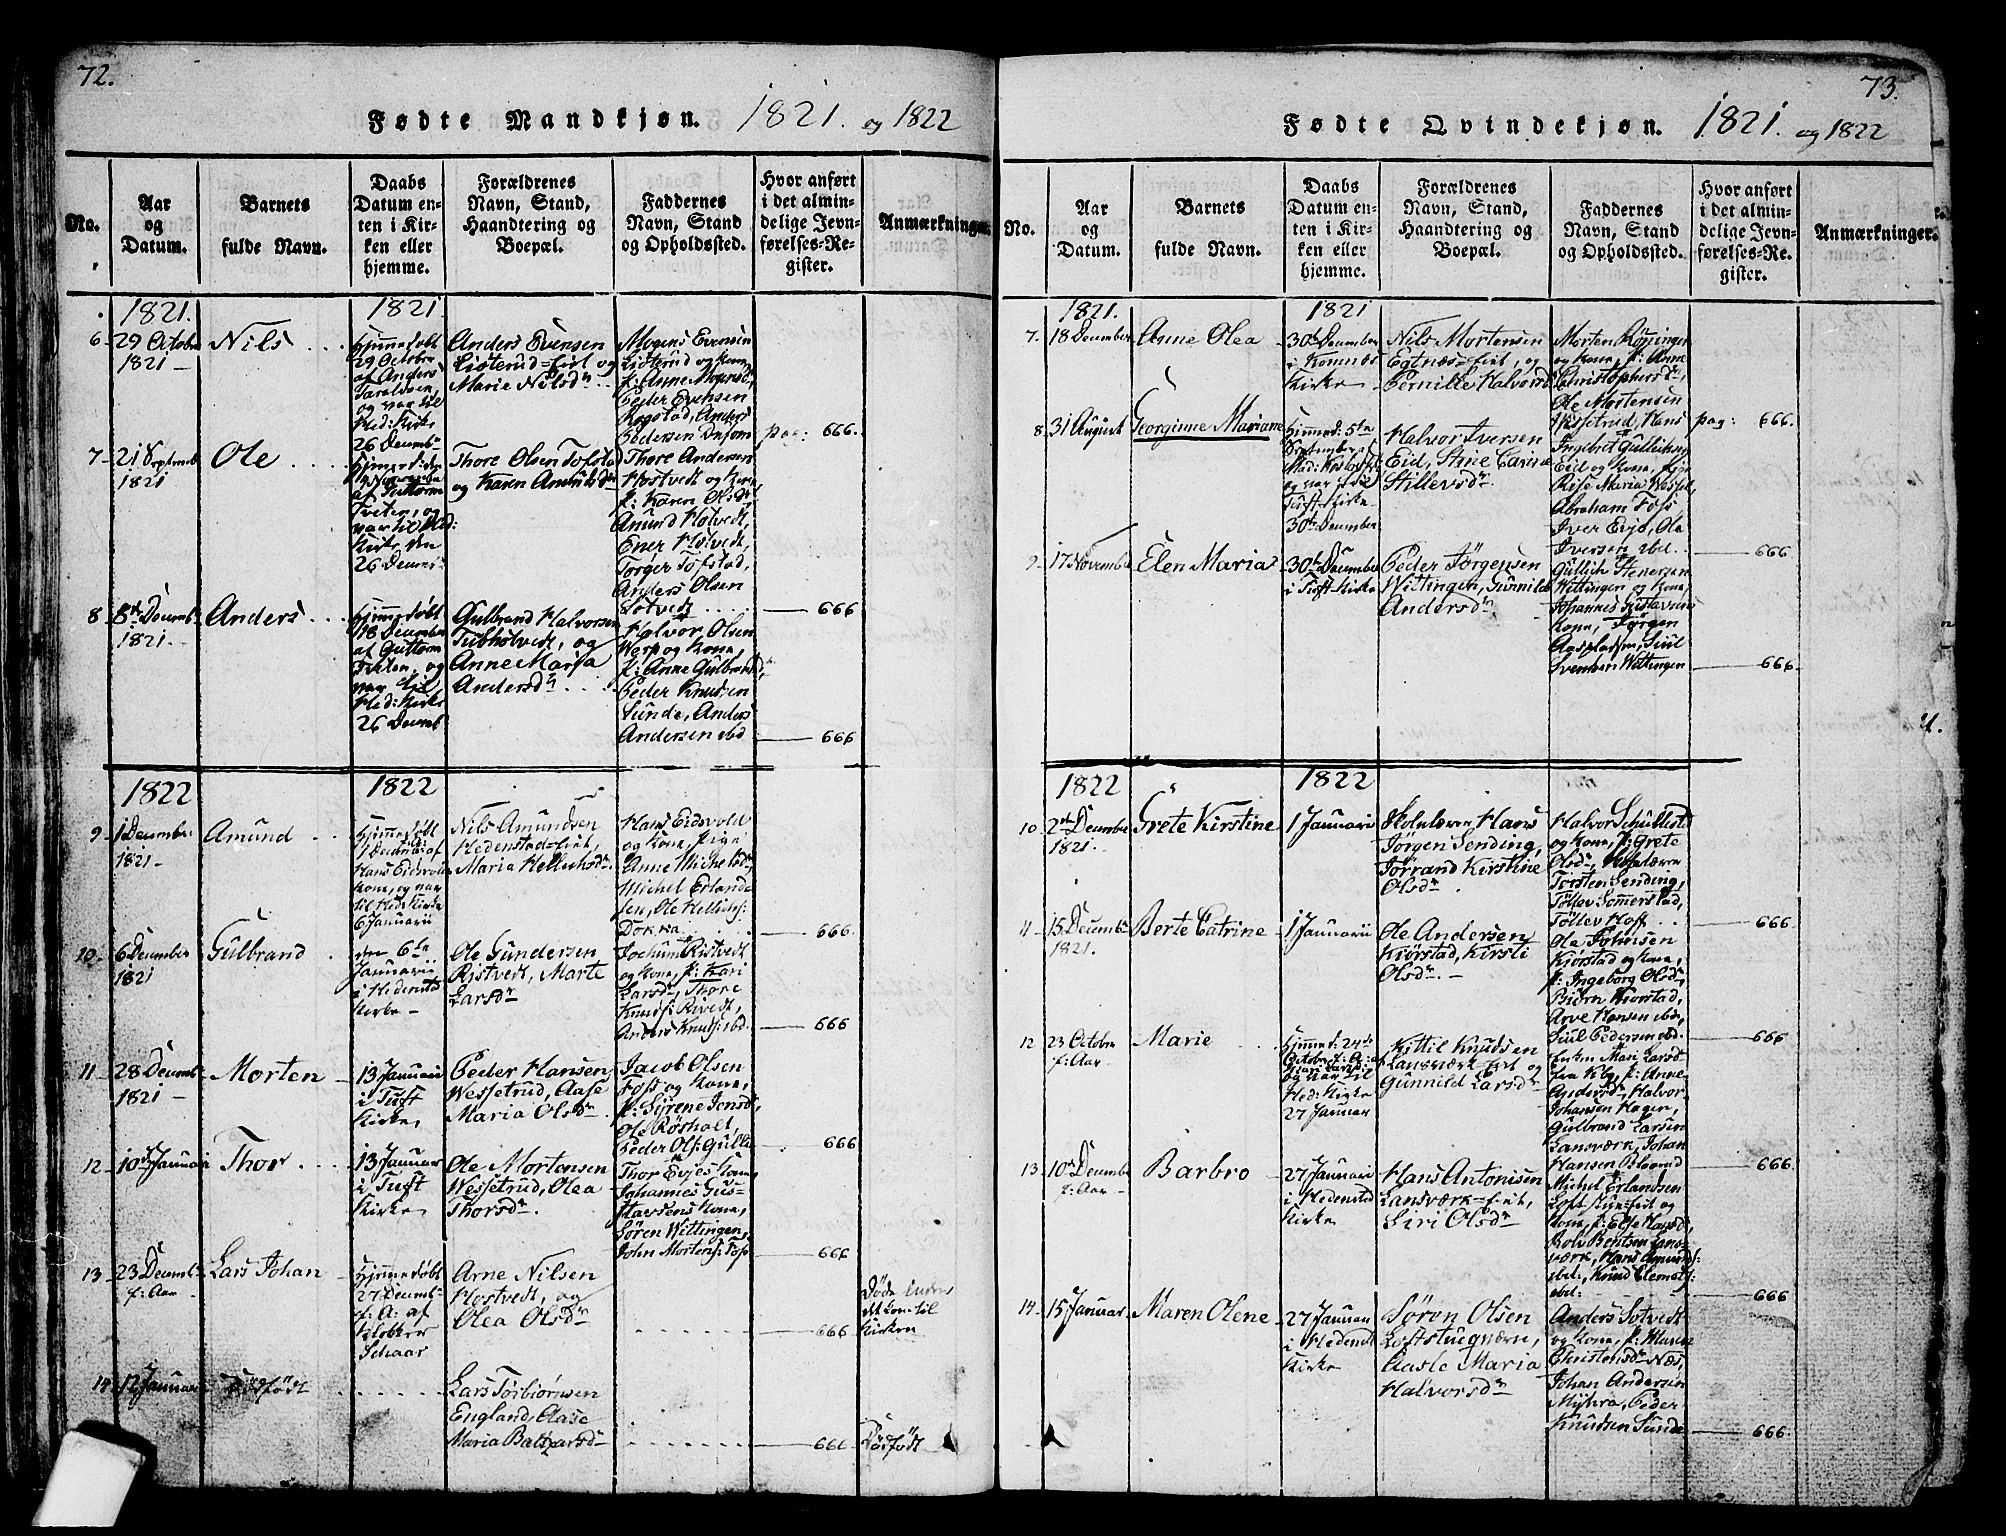 72.
Fødte Mandkjøn. 1821. og 1822
No.
Aar
og
Datum.
Barnets
fulde Navn.
Daabs
Datum en-
ten i Kir-
ken eller
hjemme.
Forældrenes
Navn, Stand,
Haandtering og
Boepæl.
Faddernes
Navn, Stand
og Opholdssted.
Hvor anført
i det almin-
delige Jevn-
førelses-Re-
gister.
Anmærkninger.
1821.
1821
6
29 October
1821
Nils
Hjemmedøbt
29 October
af Anders
Taraldsen,
og var til
Hed: Kirke
26 Decemb
Anders Evensen
Listerud
Marie Nilsdn
Mogens Evensen
Listerud og Kone
f: Anne Mogensd,
Peder Evensen
Rogstad, Anders
Pedersen
pag: 666.
7
21 Septemb
1821
Ole
af Guttorm
Tveten, og
var til Hed:
Kirke den
26 Decemb
Thore Olsen Tofstad
og Karen Amundsdn
Thore Andersen
Hostvedt og Kone
f: Karen Olsdn
Amund Hotvedt,
Ener Hotvedt,
Torger Tofstad,
Anders Olsen
Sotvedt
666
8
8de Decemb
1821
Anders
Hjemmedøbt
18 December
af Guttorm
Tveten, og
var til
Hed: Kirke
26 Decemb
Gulbrand Halvorsen
Tubholvedt, og
Anne Maria
Andersdn
Halvor Olsen
Werp og Kone,
f: Anne Gulbrandsd,
Peder Knudsen
Sunde, Anders
Andersen ibd
666
1822
1822
9
1 December
1821
Amund
Hjemmedøbt
Hans Eidsvold
Kone, og var
til Hed: Kirke
6 Januarii
Nils Amundsen
Hedenstad-eiet,
Maria Hellichsdn
Hans Eidsvold
og Kone,
Anne Michelsd
Michel Erland-
sen, Ole Hellichs:
Dokka
666
10
6 December
1821
Gulbrand
den 6te
Januarii
i Hedenstd
Kirke
Ole Gundersen
Ristvedt, Marte
Larsdn
Jochum Ristvedt
og Kone, f: Kari
Larsdn, Thore
Knuds: Rivedt,
Anders Knuds: ibd
666
11
28 Decemb
1821
Morten
13 Januari
i Tuft
Kirke
Peder Hansen
Wessetrud, Aase
Maria Olsdn
Jacob Olsen
Foss og Kone,
f: Sirene Jensd,
Ole Røsholt,
Peder Ols: Gulli
666
12
10de Januari
Thor
13 Januar
i Tuft
Kirke
Ole Mortensen
Wessetrud, Olea
Thorsdn
Thor Evjes Kone
Johannes Gus-
tavsens Kone,
Søren Wittingen,
John Mortens: Foss
666
13
23 Decemb
f: Aar
Lars Johan
Hjemmedøbt
27 Decemb
f: A: af
Klokker
Schaar
Arne Nilsen
Hostvedt, og
Olea Olsdn
666
Døde inden
det kom til
Kirken
14
12 Januari
Dødfødt
Lars Torbiørnsen
England, Aase
Maria Baltzarsdn
666
Dødfødt
73.
Fødte Qvindekjøn. 1821. og 1822
No.
Aar
og
Datum.
Barnets
fulde Navn.
Daabs
Datum en-
ten i Kir-
ken eller
hjemme.
Forældrenes
Navn, Stand,
Haandtering og
Boepæl.
Faddernes
Navn, Stand
og Opholdssted.
Hvor anført
i det almin-
delige Jevn-
førelses-Re-
gister.
Anmærkninger.
1821.
1821
7.
18 December
Anne Olea
30te December
i Komnæs
Kirke
Nils Mortensen
Egtnæs-eiet, og
Pernille Halvorsd
Morten Røyningen
og Kone, f: Anne
Christophersdn,
Ole Mortensen
Wessetrud, Hans
8
31 August
Georginne Mariane
Hjemmed: 5te
September i
og var til
Tuft-Kirke
30te December
Halvor Iversen
Eid, Stine Carine
Sillevsdn
pag: 666.
Ingebret Gullichsen
Eid og Kone,
Abraham Foss
Iver Evjo, Ole
Iversen ibd.
666
9
17 November
Elen Maria
30te December
i Tuft-Kirke
Peder Jørgensen
Wittingen, Gunnild
Andersdn
Gullich Stenersen
Wittingen og Kone,
Johannes Gustavsens
Kone, Jørgen
Aasplassen, Siul
Svendsen Wittingen
666.
1822
1822
10
2de December
1821.
Grete Kirstine
1 Januarii
Skolelærer Hans
Jørgen Sending,
Jørrand Kirstine
Olsdn
Halvor Schullstad
og Kone, f: Grete
Olsdn,
Torsten Sending,
Tollev Somerstad,
Tollev Hoff
666
11
15 Decemb
1821.
Berte Catrine
1 Januarii
Ole Andersen
Kiørstad, Kirsti
Olsdn
Ole Johnsen
Kiørstad og Kone,
f: Ingeborg Olsdn
Biørn Kiørstad,
Arve Hansen ibd,
Siul Pedersen ibd.
666
12
23 October
f: Aar
Marie
Hjemmed: 24de
October f: A: af
og var til
Hed: Kirke
27 Januar
Kittil Knudsen
Lansværk-eiet og
Gunnild Larsdn
Enken Mari Larsd
fra Kbg, f: Anne
Andersd, Halvor
Johansen Hagen,
Gulbrand Larsen
Lansværk, Johan
Hansen
666.
13
10de Decembr
f: Aar
Barbro
27 Januarii
i Hedensted
Kirke
Hans Antonisen
Lansværk-eiet,
Siri Olsdn
Michel Erlandsen
Loftstue-eiet og
Kone, f: Else Hansd,
Bolv Bentsen Lans-
værk, Hans Amunds:
ibd:, Knud Clemets:
ibd:
666
14
15 Januar
Maren Olene
27 Januar
i Hedenst
Kirke
Søren Olsen
Loftstueværn,
Aasle Maria
Halvorsdn
Anders Sotvedt
og Kone, f: Maren
Christensdn Næs,
Johan Andersen
Myhra, Peder
Knudsen Sunde
666.